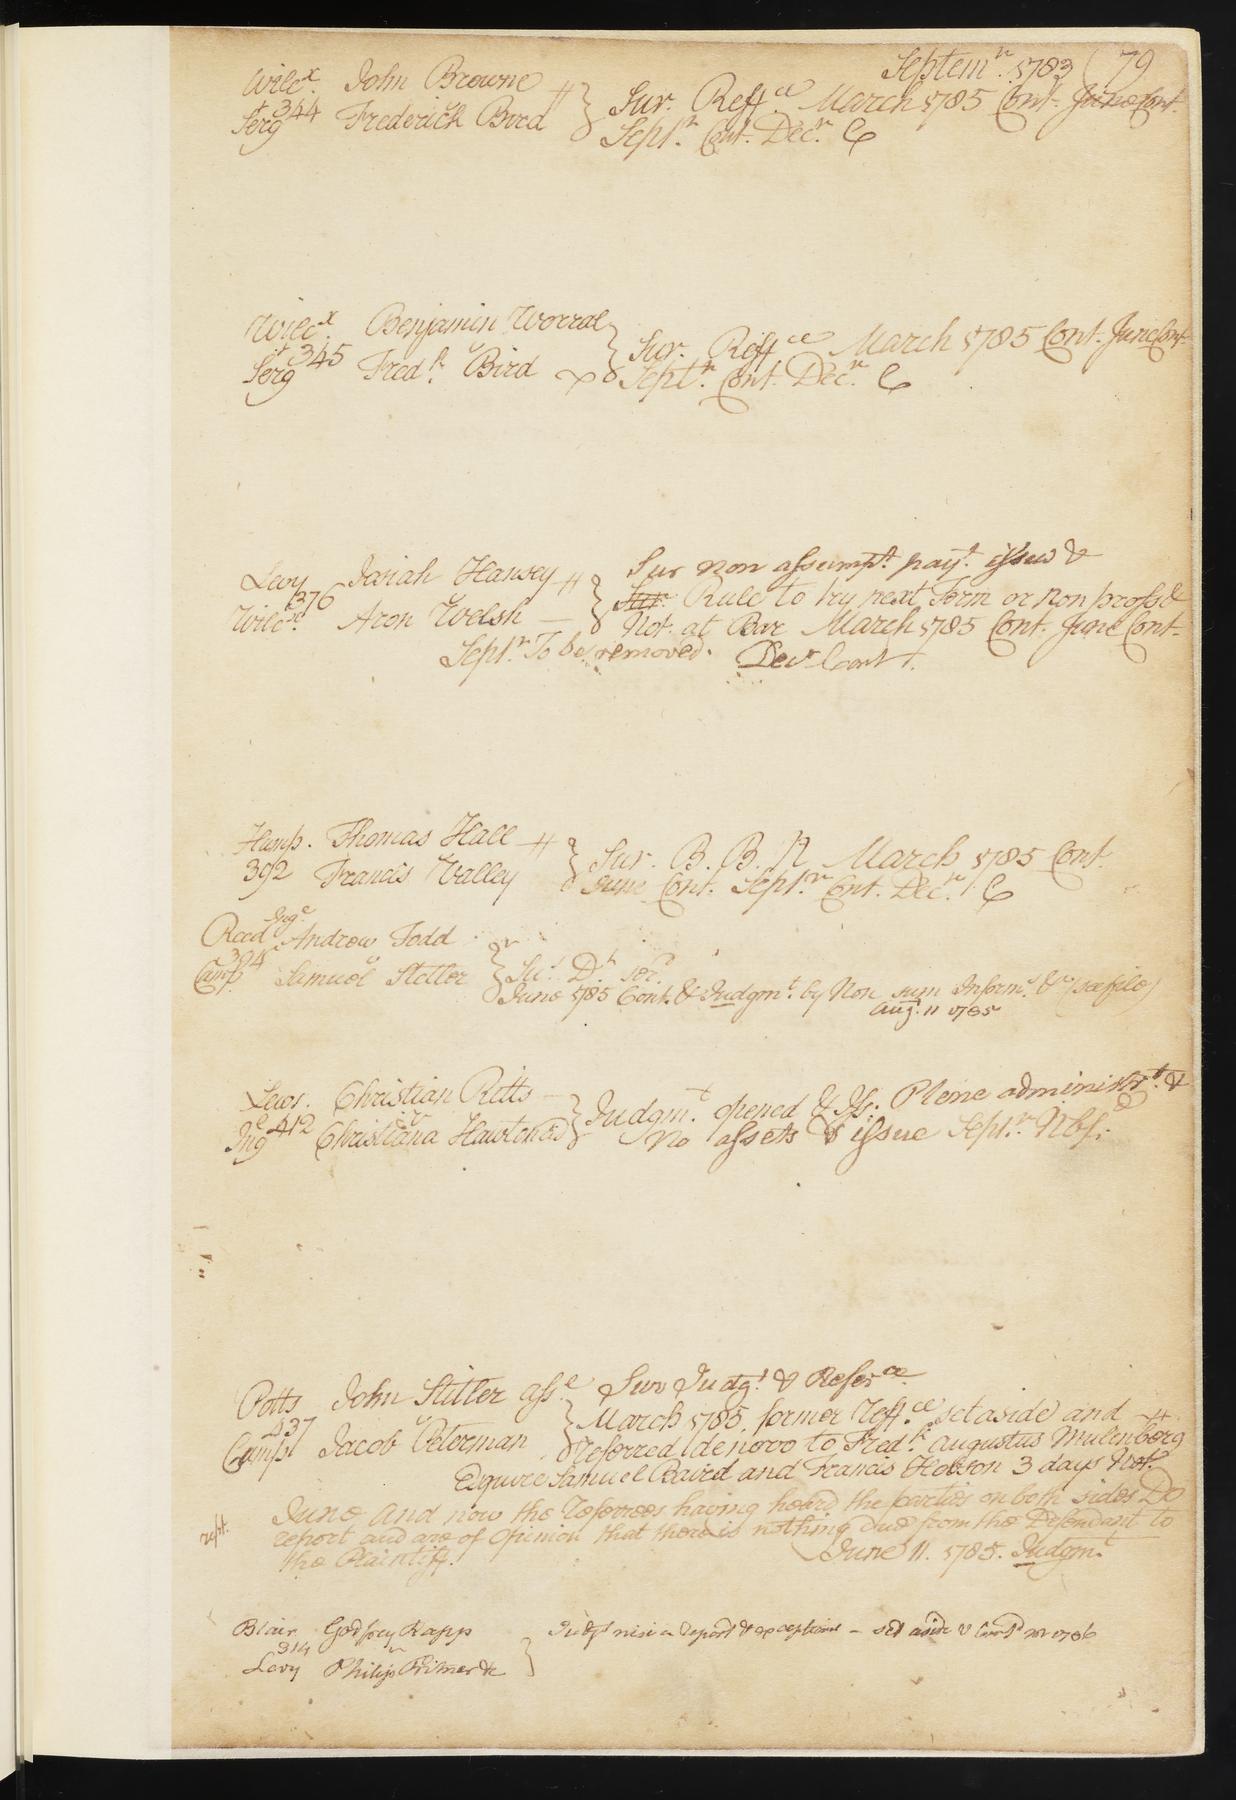 Septemr. 1783 (79
Wilcx. John Browne
344
Sergt Frederick Bird
Sur. Reffce March 1785 Cont. June Cont.
Septr. Cont. Decr. C
Wilcx. Benjamin Worral
345
Sergt Fredk. Bird
Sur. Reffce March 1785 Cont. June Cont.
Septr. Cont. Decr. C
Levy Isaiah Hansey
376
Wilcx. Aron Welsh
Sur non assumpt. payt. issue &
Sur. Rule to try next Term or non pross &
Not. at Bar March 1785 Cont. June Cont.
Septr. To be removed. Decr Cont.
Hamp. Thomas Hall
392 Francis Valley
Sur. B. B. N March 1785 Cont.
June Cont. Septr. Cont. Decr. C
Read Inge. Andrew Todd
Camp. Samuel Stetler
June 1785 Cont. & Judgmt. by Non sum Inform. & (see file)
Aug. 11 1785
Lewr. Christian Ritts
412
Inge Christiana
Judgmt. opened & Iss. Plene administrt. &
No assets & issue Septr.
Potts John Stitler asse
437
Camp. Jacob Peterman
Sur Judgt. & Referce.
March 1785. former Reffce. set aside and
referred de novo to Fredk. Augustus Mulenberg
Esquire Samuel Baird and Francis Hobson 3 days Not.
rept. June And now the Referrees having heard the parties on both sides Do
report and are of Opinion that there is nothing due from the Defendant to
the Plaintiff. June 11. 1785. Judgmt
Blair Godfrey Rapp
314
Levy Philip
Judgt nisi report & exceptions - set aside &